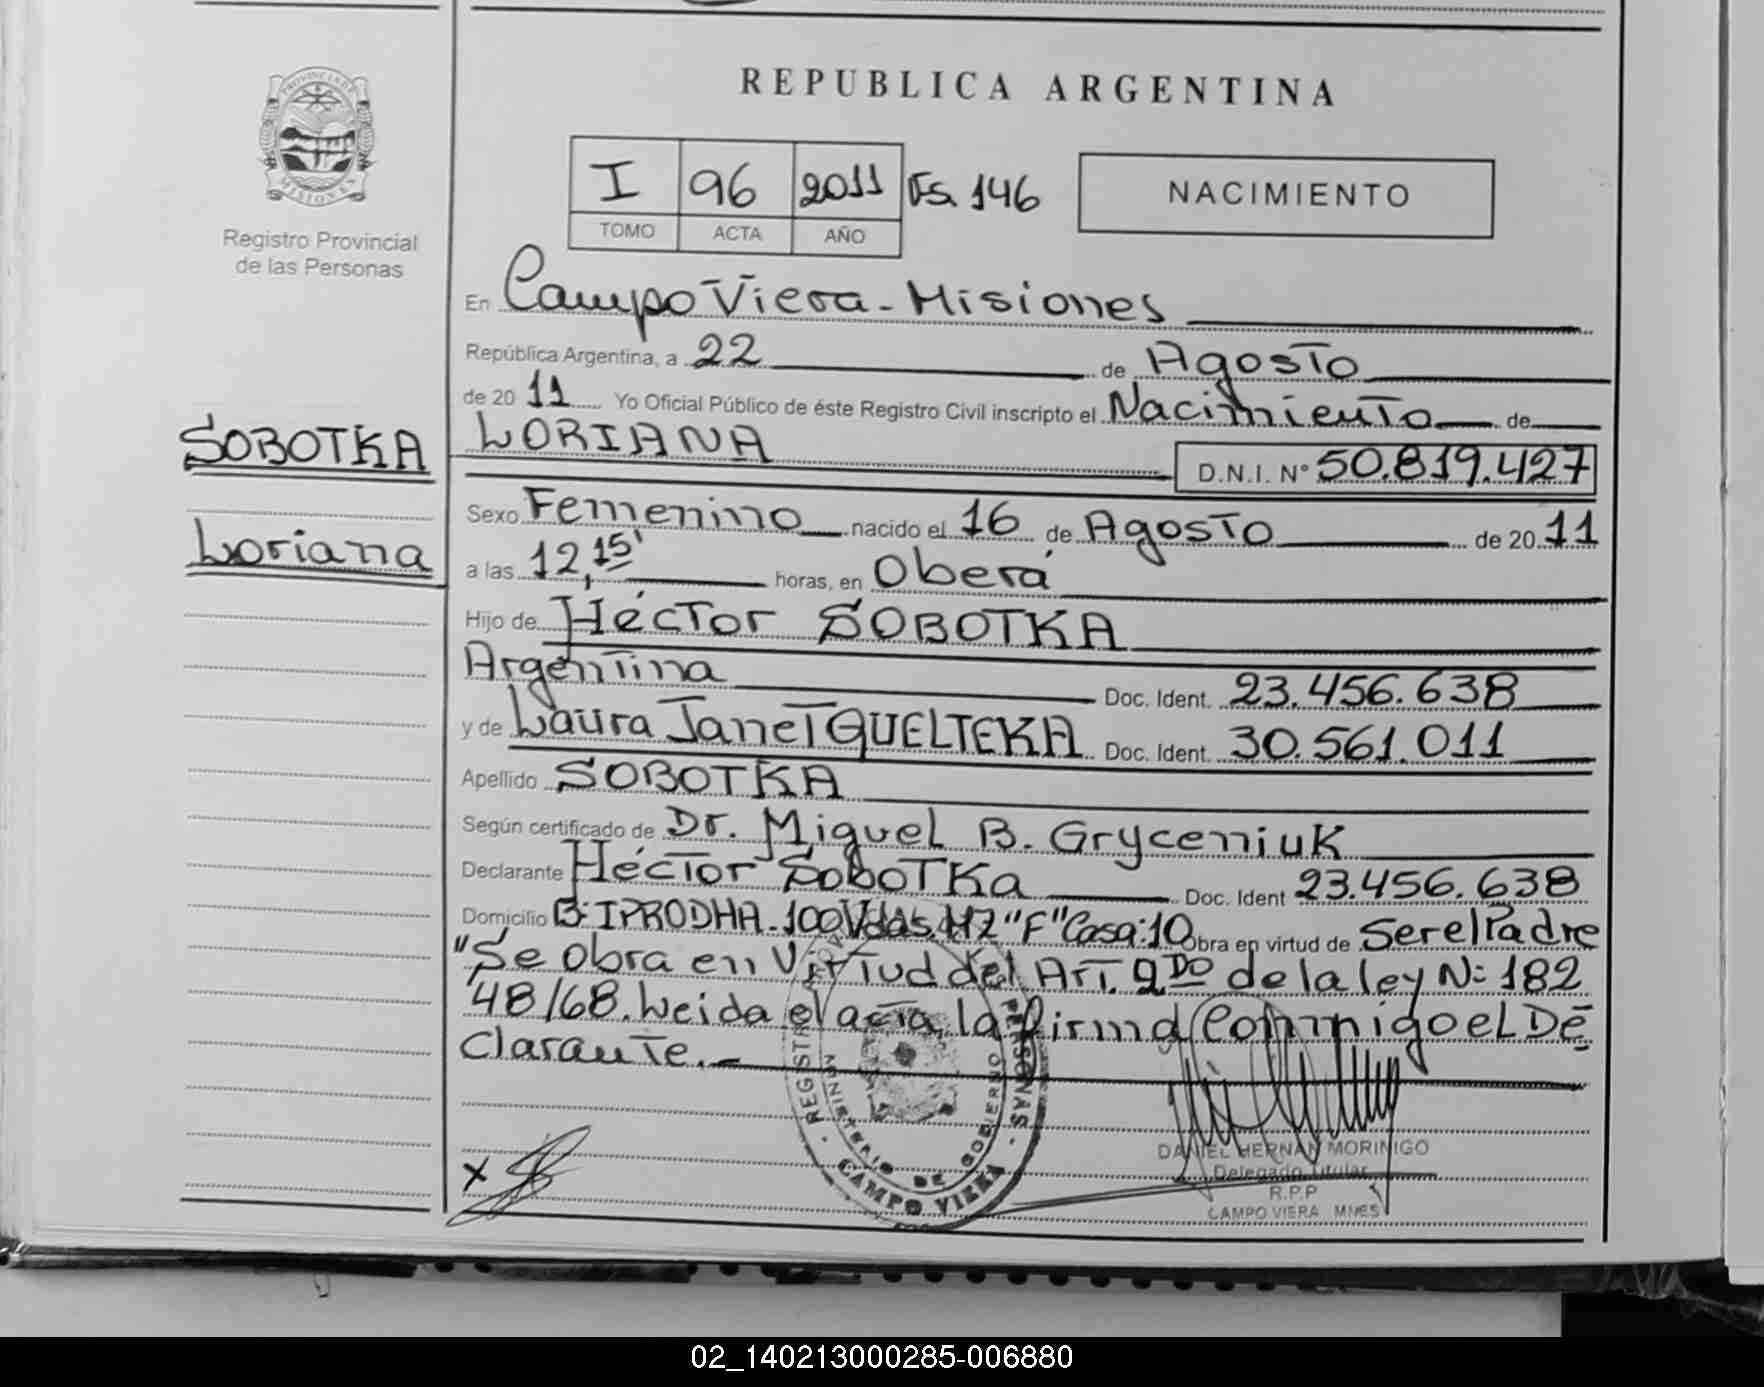 REPUBLICA ARGENTINA
PROVINCIA DE MISIONES
Registro Provincial
de las Personas
I 96 2011 Fs. 146
TOMO ACTA AÑO
NACIMIENTO
En Campo Viera - Misiones
República Argentina, a 22 de Agosto
de 2011 Yo Oficial Público de éste Registro Civil inscripto el Nacimiento de
SOBOTKA
Loriana
LORIANA D.N.I. N° 50.819.427
Sexo Femenino nacido el 16 de Agosto de 2011
a las 12,15' horas, en Oberá
Hijo de Héctor SOBOTKA
Argentina Doc. Ident. 23.456.638
y de Laura Janet QUELTEKA Doc. Ident. 30.561.011
Apellido SOBOTKA
Según certificado de Dr. Miguel B. Gryceniuk
Declarante Héctor Sobotka Doc. Ident 23.456.638
Domicilio B: IPRODHA - 100 Vdas. MZ "F" Casa: 10 Obra en virtud de Ser el Padre
"Se obra en virtud del Art. 2DO de la ley N: 182
48/68. Leida el acta, la firma conmigo el De
clarante.
REGISTRO PERSONAS
MINISTERIO DE GOBIERNO
CAMPO VIERA
X
DANIEL HERNAN MORINIGO
Delegado Titular
R.P.P
CAMPO VIERA MNES
02_140213000285-006880